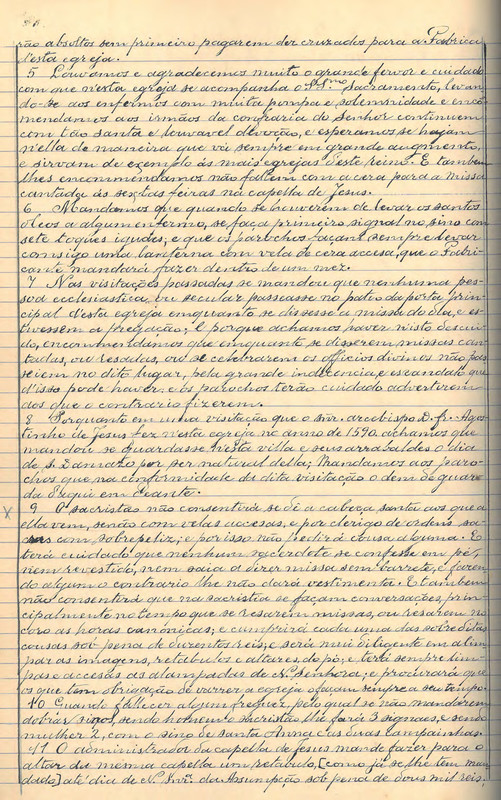 rão absoltos sem primeiro pagarem dez cruzados para a Fabrica
d'esta egreja.
5 Louvamos e agradecemos muito o grande fervor e cuidado
com que n'esta egreja se acompanha o SS.mo Sacramento, levan-
do-se aos enfermos com muita pompa e solemnidade e encom-
mendamos aos irmãos da confraria do Senhor continuem
com tão santa e louvavel devoção, e esperamos se hajam
n'ella de maneira que vá sempre em grande augmento,
e sirvam de exemplo ás mais egrejas d'este reino. E tambem
lhes encommendamos não faltem com a cera para a missa
cantada ás sextas feiras na capella de Jesus.
6 Mandamos que quando se houverem de levar os santos
oleos a algum enfermo, se faça primeiro signal no sino com
sete toques iguaes; e que os parochos façam sempre levar
comsigo uma lanterna com vela de cera accesa, que o Fabri-
cante mandará fazer dentro de um mez.
7 Nas visitações passadas se mandou que nenhuma pes-
soa ecclesiastica, ou secular passeasse no pateo da porta prin-
cipal d'esta egreja emquanto se dissesse a missa do dia, e es-
tivessem a prégação; E porque achamos haver n'isto descui-
do, encommendamos que emquanto se disserem missas can-
tadas, ou resadas, ou se celebrarem os officios divinos não pas-
seiem no dito lugar, pela grande indecencia, e escandalo que
d'isso pode haver. e os parochos terão cuidado advertirem
aos que o contrario fizerem.
8 Porquanto em uma visitação que o Snr. arcebispo D. fr. Agos-
tinho de Jesus fez n'esta egreja no anno de 1590. achamos que
mandou se guardasse n'esta villa e seus arrabaldes o dia
de S. Damazo por ser natural della; Mandâmos aos paro-
chos que na conformidade da dita visitação o dem de guar-
da d'aqui em deante.
9 O sacristão não consentirá se dê a cabeça santa aos que a
ella vem, senão com velas accesas, e por clerigo de ordens sa-
cras com sobrepeliz; e por isso não pedirá cousa alguma. E
terá cuidado que nenhum sacerdote se confesse em pé,
nem revestido, nem saia a dizer missa sem barrete, e fazen-
do algum o contrario lhe não dará vestimenta. E tambem
não consentirá que na sacristia se façam conversações, prin-
cipalmente no tempo que se resarem missas, ou resarem no
coro as horas canonicas; e cumprirá cada uma das sobreditas
cousas sob pena de duzentos reis; e será mui diligente em alim-
par as imagens, retabulos e altares, do pó; e terá sempre lim-
pas e accesas as alampadas de N. Senhora, e procurará que
os que tem obrigação de varrer a egreja o façam sempre a seu tempo.
10 Quando fallecer algum freguez, pelo qual se não mandarem
dobrar sinos, sendo homem o sacristão lhe fará 3 signaes, e sendo
mulher 2, com o sino de santa Anna e as duas campainhas.
11 O administrador da capella de Jesus mande fazer para o
altar da mesma capella um retabulo, [como já se lhe tem man-
dado] até dia de N. Snr.a da Assumpção sob pena de dous mil reis,